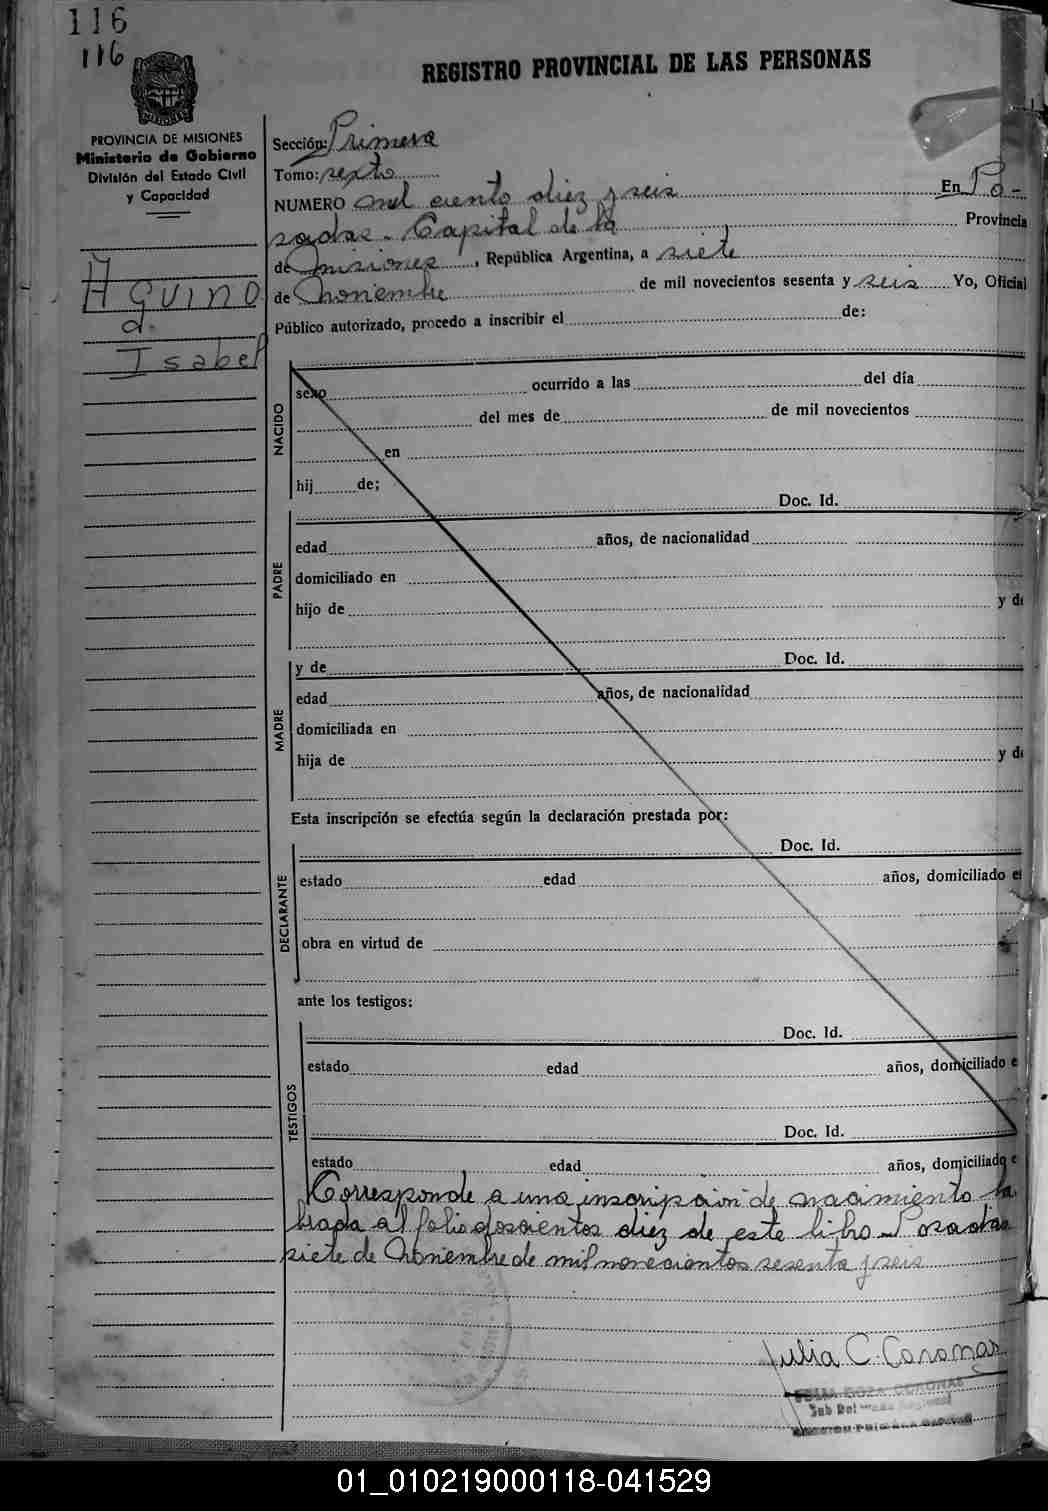 116
116
REGISTRO PROVINCIAL DE LAS PERSONAS
MISIONES
PROVINCIA DE MISIONES
Ministerio de Gobierno
División del Estado Civil
y Capacidad
Sección: Primera
Tomo: sexto
NUMERO mil ciento diez y seis En Po-
sadas - Capital de la Provincia
de Misiones, República Argentina, a siete
de Noviembre de mil novecientos sesenta y seis Yo, Oficial
Público autorizado, procedo a inscribir el de:
AQUINO
d.
Isabel
NACIDO
sexo ocurrido a las del día
del mes de de mil novecientos
en
hij de;
Doc. Id.
PADRE
edad años, de nacionalidad
domiciliado en
hijo de y de
y de Doc. Id.
MADRE
edad años, de nacionalidad
domiciliada en
hija de y de
Esta inscripción se efectúa según la declaración prestada por:
Doc. Id.
DECLARANTE
estado edad años, domiciliado e
obra en virtud de
ante los testigos:
Doc. Id.
TESTIGOS
estado edad años, domiciliado e
Doc. Id.
estado edad años, domiciliado e
Corresponde a una inscripcion de nacimiento la
brada al folio doscientos diez de este libro - Posadas
siete de Noviembre de mil novecientos sesenta y seis
Julia C. Coronas
CORONAS
Sub
01_010219000118-041529